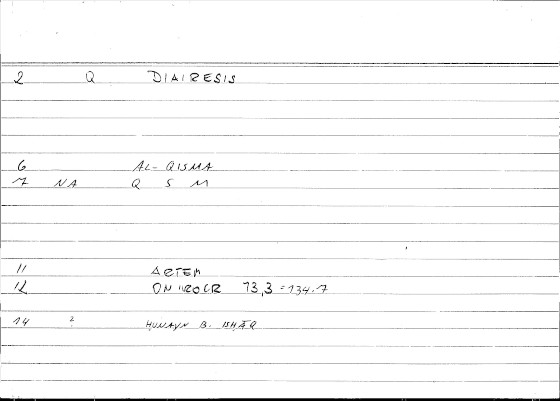 2 Q DIAIRESIS
6 AL-QISMA
7 NA Q S M
11 ARTEM
12 ONIROCR 13,3 = 134.7
14 ? HUNAYN B. ISHĀQ